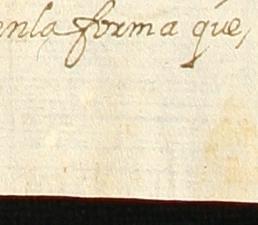 enla forma que,